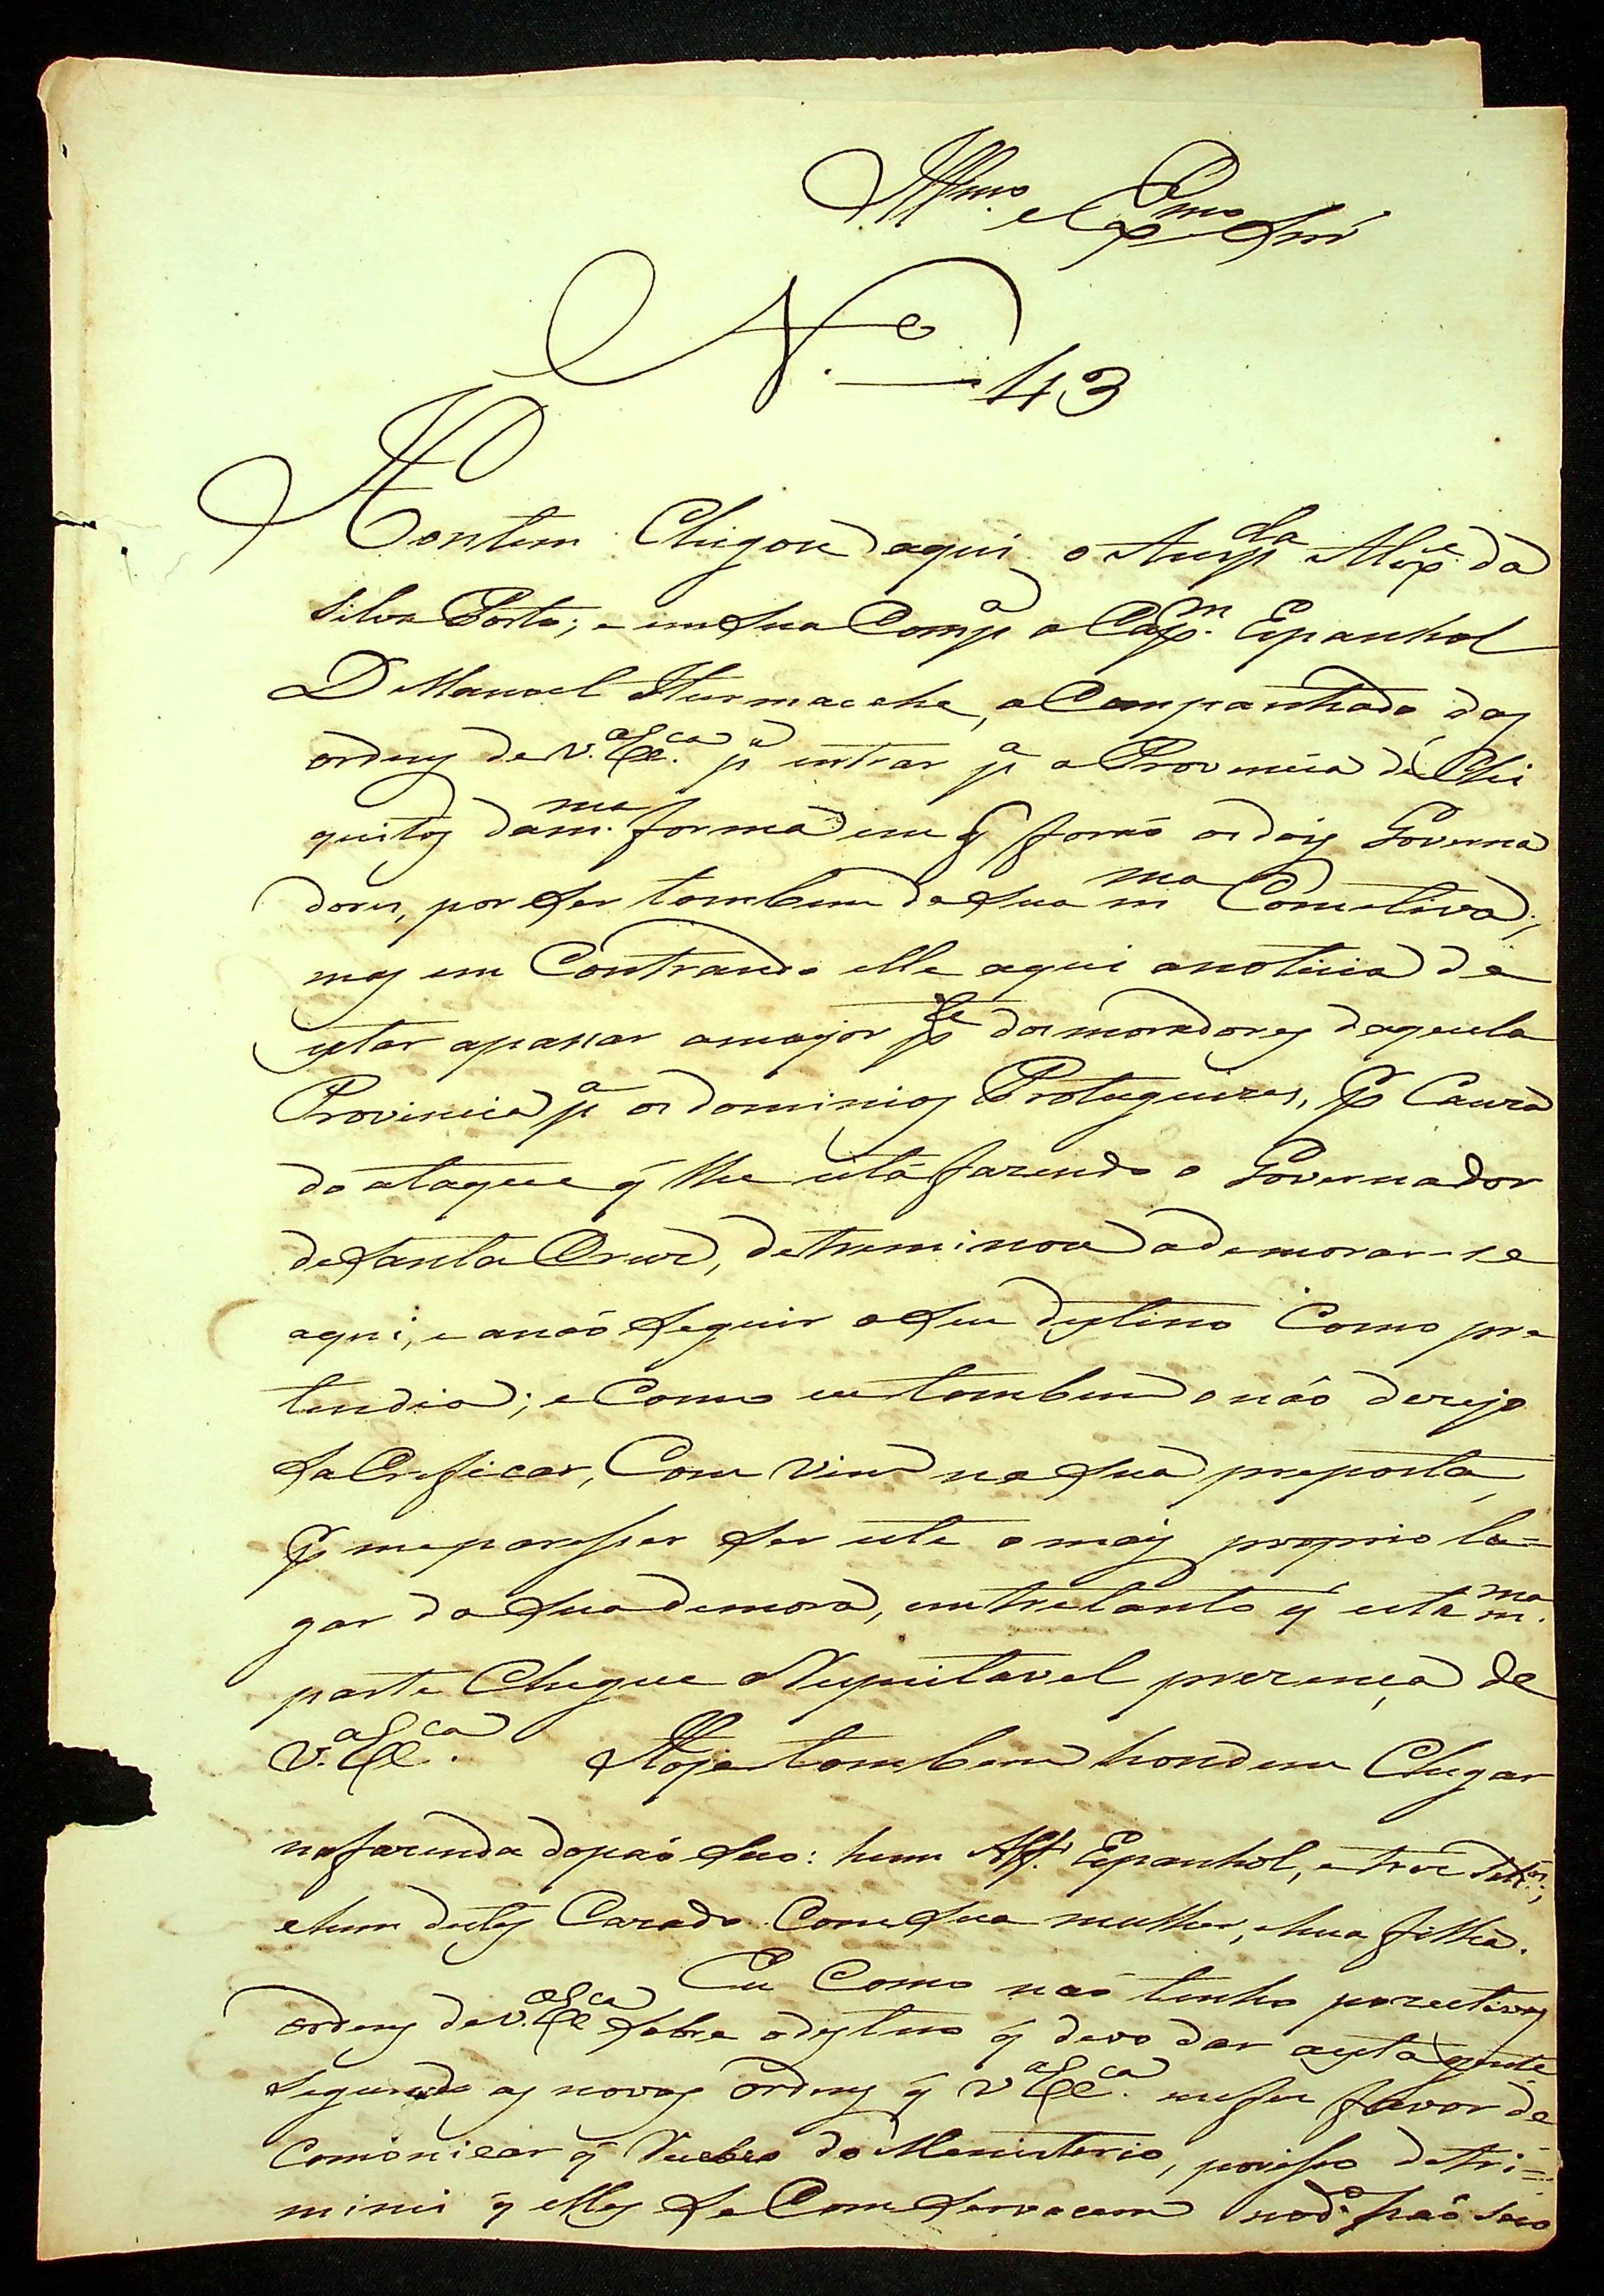 Illmo. e Exmo Snr
N.o 43
Hontem Chegou aqui o Ansp.da Alexe. da
Silva Porto; e em sua Comp.a o Cap.m Espanhol
D Manoel, aCompanhado das
ordens de V.a Ex.ca p.a entrar p.a a Provincia de Chi
quitos da m.ma forma em q forão os dois Governa
dores, por ser tambem da sua m.ma Cometiva;
mas em Contrando elle aqui a noticia de
estar a passar a major p.te dos moradores daquela
Provincia p.a os dominios Protuguezes, p Cauza
do ataque q lhe está fazendo o Governador
de Santa Cruz, detreminou a demorar-se
aqui, e a não seguir o seu destino Como pre
tendia; e Como eu tambem o não dezejo
saCrificar, Com vim na sua preposta,
p me paresser ser este o mais proprio lu=
gar da sua demora, entretanto q esta m.ma
parte Chegue a Respeitavel prezença de
V.a Ex.ca Hoje tambem hondem Chegar
na fazenda do pao seco: hum Alf.s Espanhol, e trez Sold.os;
e hum destes Cazado Com sua mulher, e hua filha.
Eu Como não tenho pozetivas
ordens de V.a Ex.ca sobre o destino q devo dar a esta gente
segundo as novas ordens q V.a Ex.ca me fes o favor de
Comonicar q Recebeo do Menisterio, por isso detri=
minei q elles se Com servacem no d.o páo seco